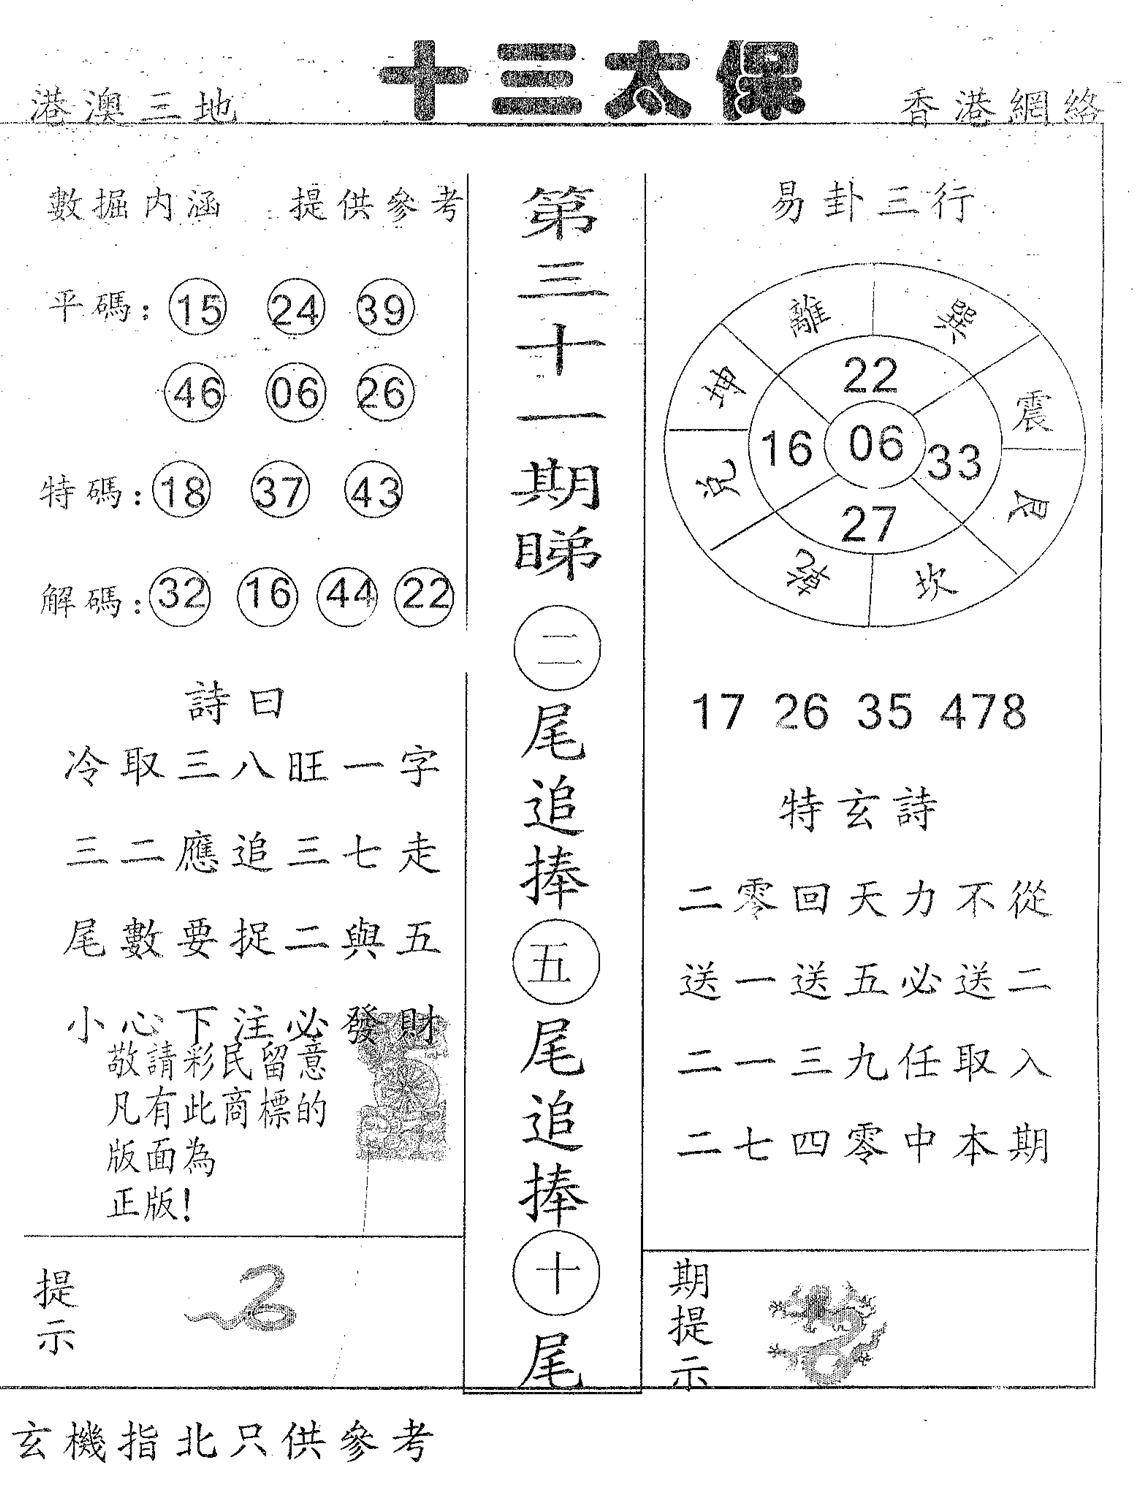 十三太保
港澳三地
香港網絡
數掘内涵 提供參考
平碼: 15 24 39
46 06 26
特碼: 18 37 43
解碼: 32 16 44 22
詩曰
冷取三八旺一字
三二應追三七走
尾數要捉二與五
小心下注必發財
敬請彩民留意
凡有此商標的
版面為
正版!
提示
第三十一期睇二尾追捧五尾追捧十尾
易卦三行
離 巽
坤 震
兌 艮
乾 坎
22
16 06 33
27
17 26 35 478
特玄詩
二零回天力不從
送一送五必送二
二一三九任取入
二七四零中本期
期提示
玄機指北只供參考